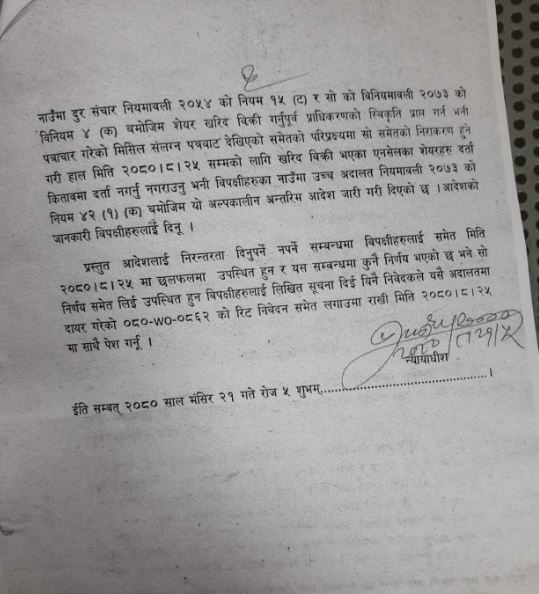 नाउँमा दुर संचार नियमावली २०५४ को नियम १५ (ट) र सो को विनियमावली २०७३ को
विनियम ४ (क) बमोजिम शेयर खरिद विक्री गर्नुपूर्व प्राधिकरणको स्विकृति प्राप्त गर्न भनी
पत्राचार गरेको मिसिल संलग्न पत्रवाट देखिएको समेतको परिप्रक्ष्यमा सो समेतको निराकरण हुने
गरी हाल मिति २०८०।८।२५ सम्मको लागि खरिद विक्री भएका एनसेलका शेयरहरु दर्ता
कितावमा दर्ता नगर्नु नगराउनु भनी विपक्षीहरुका नाउँमा उच्च अदालत नियमावली २०७३ को
नियम ४२ (१) (क) बमोजिम यो अल्पकालीन अन्तरिम आदेश जारी गरी दिएको छ ।आदेशको
जानकारी विपक्षीहरुलाई दिनू ।
प्रस्तुत आदेशलाई निरन्तरता दिनुपर्ने नपर्ने सम्बन्धमा विपक्षीहरुलाई समेत मिति
२०८०।८।२५ मा छलफलमा उपस्थित हुन र यस सम्बन्धमा कुनै निर्णय भएको छ भने सो
निर्णय समेत लिई उपस्थित हुन विपक्षीहरुलाई लिखित सूचना दिई यिनै निवेदकले यसै अदालतमा
दायर गरेको ०८०-WO-०८६२ को रिट निवेदन समेत लगाउमा राखी मिति २०८०।८।२५
मा साथै पेश गर्नू ।
न्यायाधीश
ईति सम्बत् २०८० साल मंसिर २१ गते रोज ५ शुभम्..........................................।